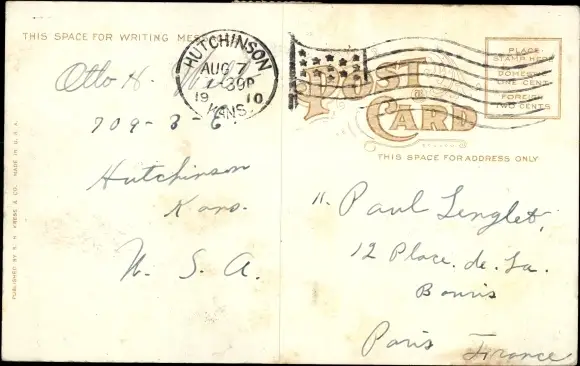 THIS SPACE FOR WRITING MESS
HUTCHINSON
AUG 7
30P
19 10
KANS.
POST
CARD
PLACE
STAMP HERE
DOMESTIC
ONE CENT
FOREIGN
TWO CENTS
THIS SPACE FOR ADDRESS ONLY
PUBLISHED BY S. H. KRESS & CO. MADE IN U.S.A.
Otto H.
709-3-E
Hutchinson
Kans.
U. S. A.
Paul Lenglet,
12 Place. de. La.
Bouris
Paris France